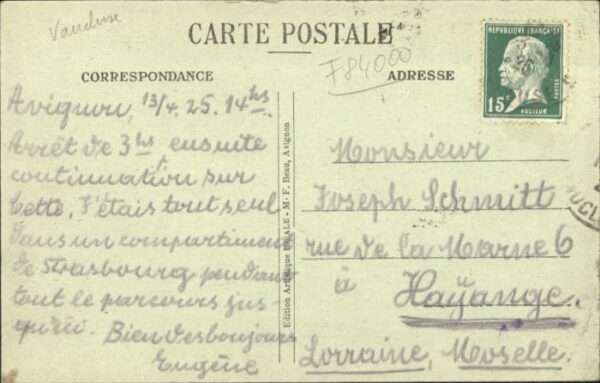 Vaucluse
CARTE POSTALE
F84000
CORRESPONDANCE
ADRESSE
REPUBLIQUE FRANÇAISE
POSTES
15c
PASTEUR
Avignon, 13/4. 25. 14 hs.
Arrêt de 3 hs ensuite
continuation sur
Cette. J'étais tout seul
dans un compartiment
de Strasbourg pendant
tout le parcours jus-
qu'ici. Bien des bonjours
Eugène
Edition Artistique - M.-F. Beau, Avignon
Monsieur
Joseph Schmitt
rue de la Marne 6
à Haÿange.
Lorraine, Moselle.